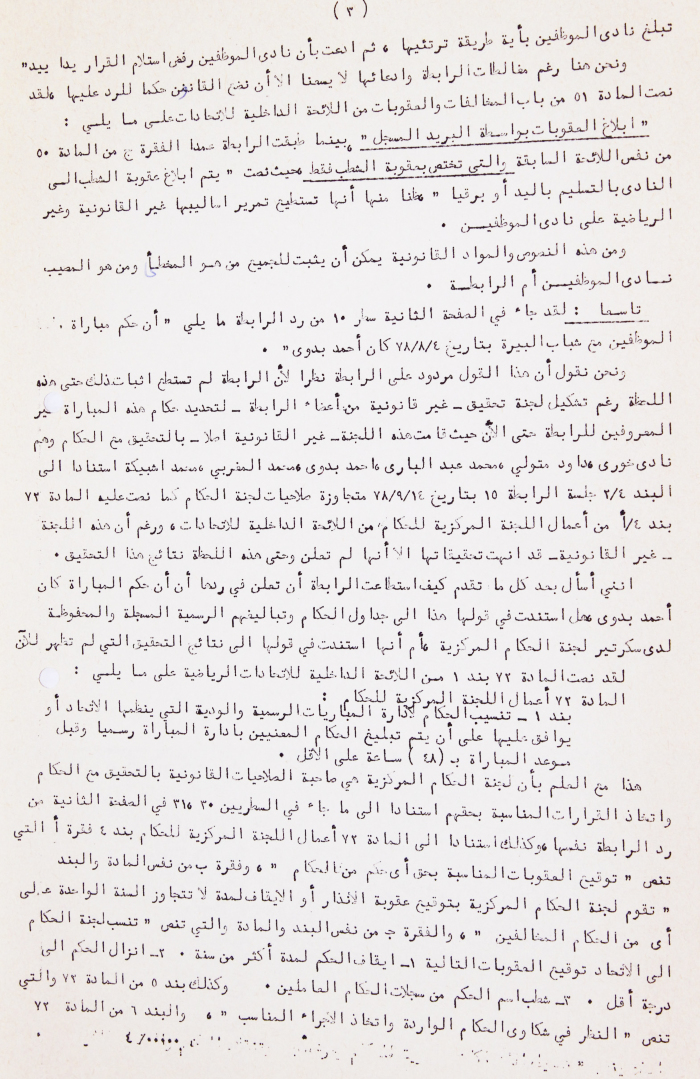 ( ٣ )
تبلغ نادى الموظفين بأية طريقة ترتئيها ، ثم ادعت بأن نادى الموظفين رفض استلام القرار يدا بيد"
ونحن هنا رغم مغالطات الرابطة وادعائها لا يسعنا الا أن نضع القانون حكما للرد عليها ، لقد
نصت المادة ٥١ من باب المخالفات والعقوبات من اللائحة الداخلية للاتحادات على ما يلي :
" ابلاغ العقوبات بواسطة البريد المسجل " ، بينما طبقت الرابطة عمدا الفقرة ج من المادة ٥٠
من نفس اللائحة السابقة والتي تختص بعقوبة الشطب فقط ، حيث نصت " يتم ابلاغ عقوبة الشطب الى
النادى بالتسليم باليد أو برقيا " ظنا منها أنها تستطيع تمرير اساليبها غير القانونية وغير
الرياضية على نادى الموظفين .
ومن هذه النصوص والمواد القانونية يمكن أن يثبت للجميع من هو المخطأ ومن هو المصيب
نادى الموظفين أم الرابطة .
تاسعا : لقد جاء في الصفحة الثانية سطر ١٠ من رد الرابطة ما يلي " أن حكم مباراة
الموظفين مع شباب البيرة بتاريخ ٧٨/٨/٤ كان أحمد بدوى " .
ونحن نقول أن هذا القول مردود على الرابطة نظرا لأن الرابطة لم تستطع اثبات ذلك حتى هذه
اللحظة رغم تشكيل لجنة تحقيق ـ غير قانونية من أعضاء الرابطة ـ لتحديد حكام هذه المباراة غير
المعروفين للرابطة حتى الآن حيث قامت هذه اللجنة ـ غير القانونية اصلا ـ بالتحقيق مع الحكام وهم
نادى خورى ، داود متولي ، محمد عبد البارى ، احمد بدوى ، محمد المغربي ، محمد اشبيكة استنادا الى
البند ٢/٤ جلسة الرابطة ١٥ بتاريخ ٧٨/٩/١٤ متجاوزة صلاحيات لجنة الحكام كما نصت عليه المادة ٧٢
بند ٤/أ من أعمال اللجنة المركزية للحكام من اللائحة الداخلية للاتحادات ، ورغم أن هذه اللجنة
ـ غير القانونية ـ قد انهت تحقيقاتها الا أنها لم تعلن وحتى هذه اللحظة نتائج هذا التحقيق .
انني أسأل بعد كل ما تقدم كيف استطاعت الرابطة أن تعلن في ردها أن أن حكم المباراة كان
أحمد بدوى ، هل استندت في قولها هذا الى جداول الحكام وتباليغهم الرسمية المسجلة والمحفوظة
لدى سكرتير لجنة الحكام المركزية ، أم أنها استندت في قولها الى نتائج التحقيق التي لم تظهر للآن
لقد نصت المادة ٧٢ بند ١ من اللائحة الداخلية للاتحادات الرياضية على ما يلي :
المادة ٧٢ أعمال اللجنة المركزية للحكام :
بند ١ ـ تنسيب الحكام لادارة المباريات الرسمية والودية التي ينظمها الاتحاد أو
يوافق عليها على أن يتم تبليغ الحكام المعنيين بادارة المباراة رسميا وقبل
موعد المباراة بـ (٤٨ ) ساعة على الاقل .
هذا مع العلم بأن لجنة الحكام المركزية هي صاحبة الصلاحيات القانونية بالتحقيق مع الحكام
واتخاذ القرارات المناسبة بحقهم استنادا الى ما جاء في السطريين ٣٠ ، ٣١ في الصفحة الثانية من
رد الرابطة نفسها ، وكذلك استنادا الى المادة ٧٢ أعمال اللجنة المركزية للحكام بند ٤ فقرة أ التي
تنص " توقيع العقوبات المناسبة بحق أى حكم من الحكام " ، وفقرة ب من نفس المادة والبند
" تقوم لجنة الحكام المركزية بتوقيع عقوبة الانذار أو الايقاف لمدة لا تتجاوز السنة الواحدة على
أى من الحكام المخالفين " ، والفقرة جـ من نفس البند والمادة والتي تنص " تنسب لجنة الحكام
الى الاتحاد توقيع العقوبات التالية ١ـ ايقاف الحكم لمدة أكثر من سنة . ٢ـ انزال الحكم الى
درجة أقل . ٣ـ شطب اسم الحكم من سجلات الحكام العاملين . وكذلك بند ٥ من المادة ٧٢ والتي
تنص " النظر في شكاوى الحكام الواردة واتخاذ الاجراء المناسب " ، والبند ٦ من المادة ٧٢